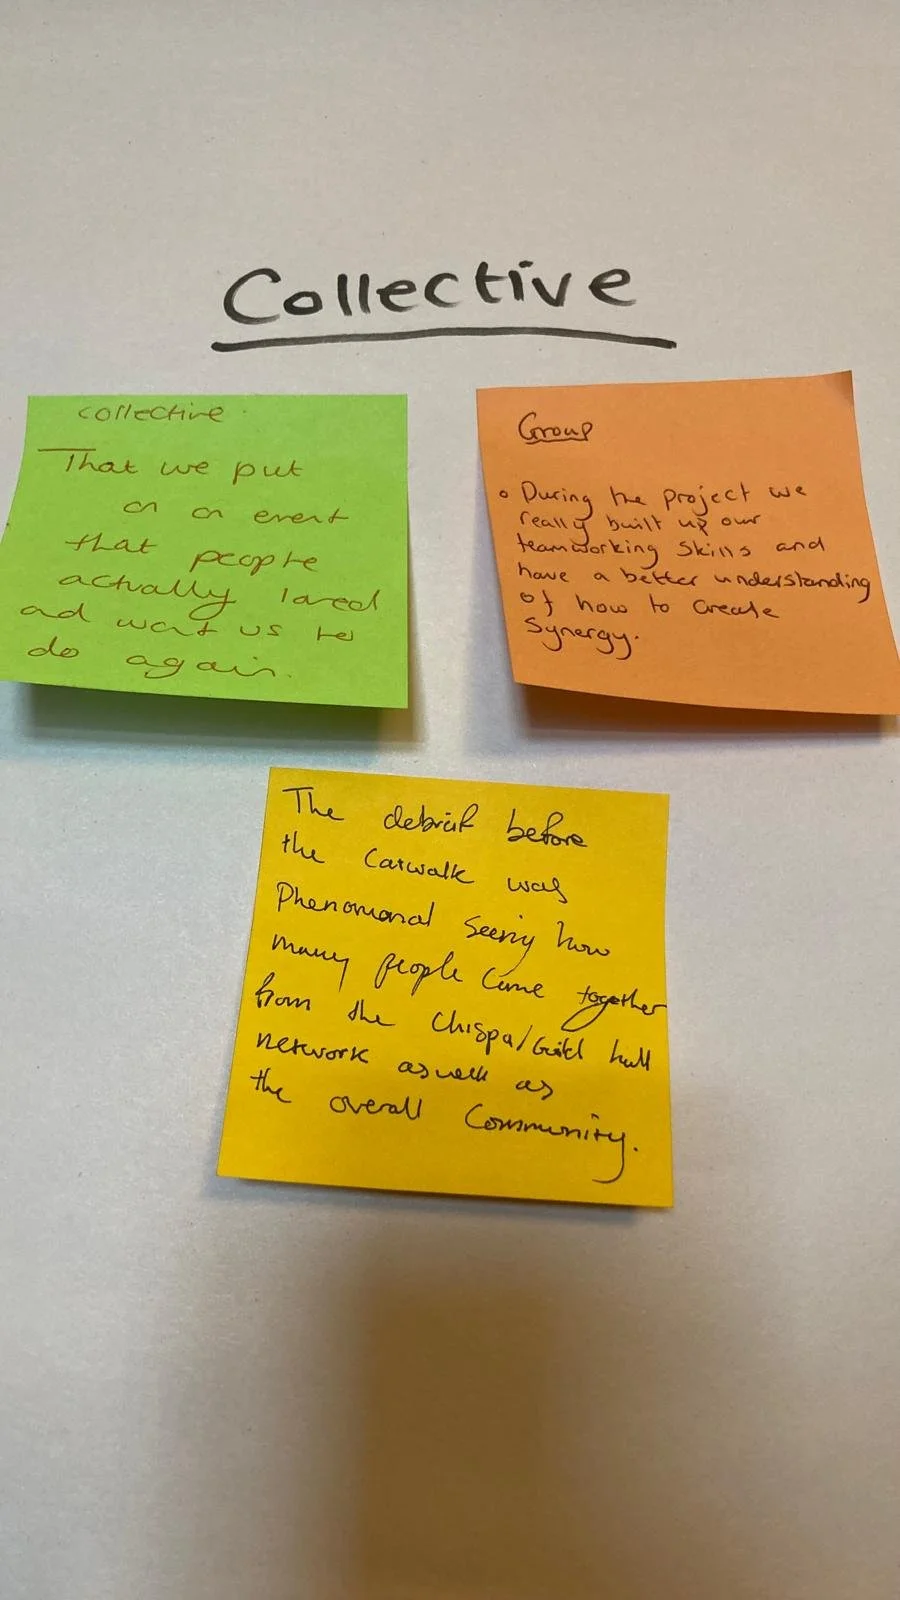 Collective
collective.
That we put
on an event
that people
actually loved
ad want us to
do again.
Group
• During the project we
really built up our
teamworking skills and
have a better understanding
of how to create
synergy.
The debrief before
the Catwalk was
Phenomonal seeing how
many people came together
from the Chispa/Guild hall
network aswell as
the overall Community.